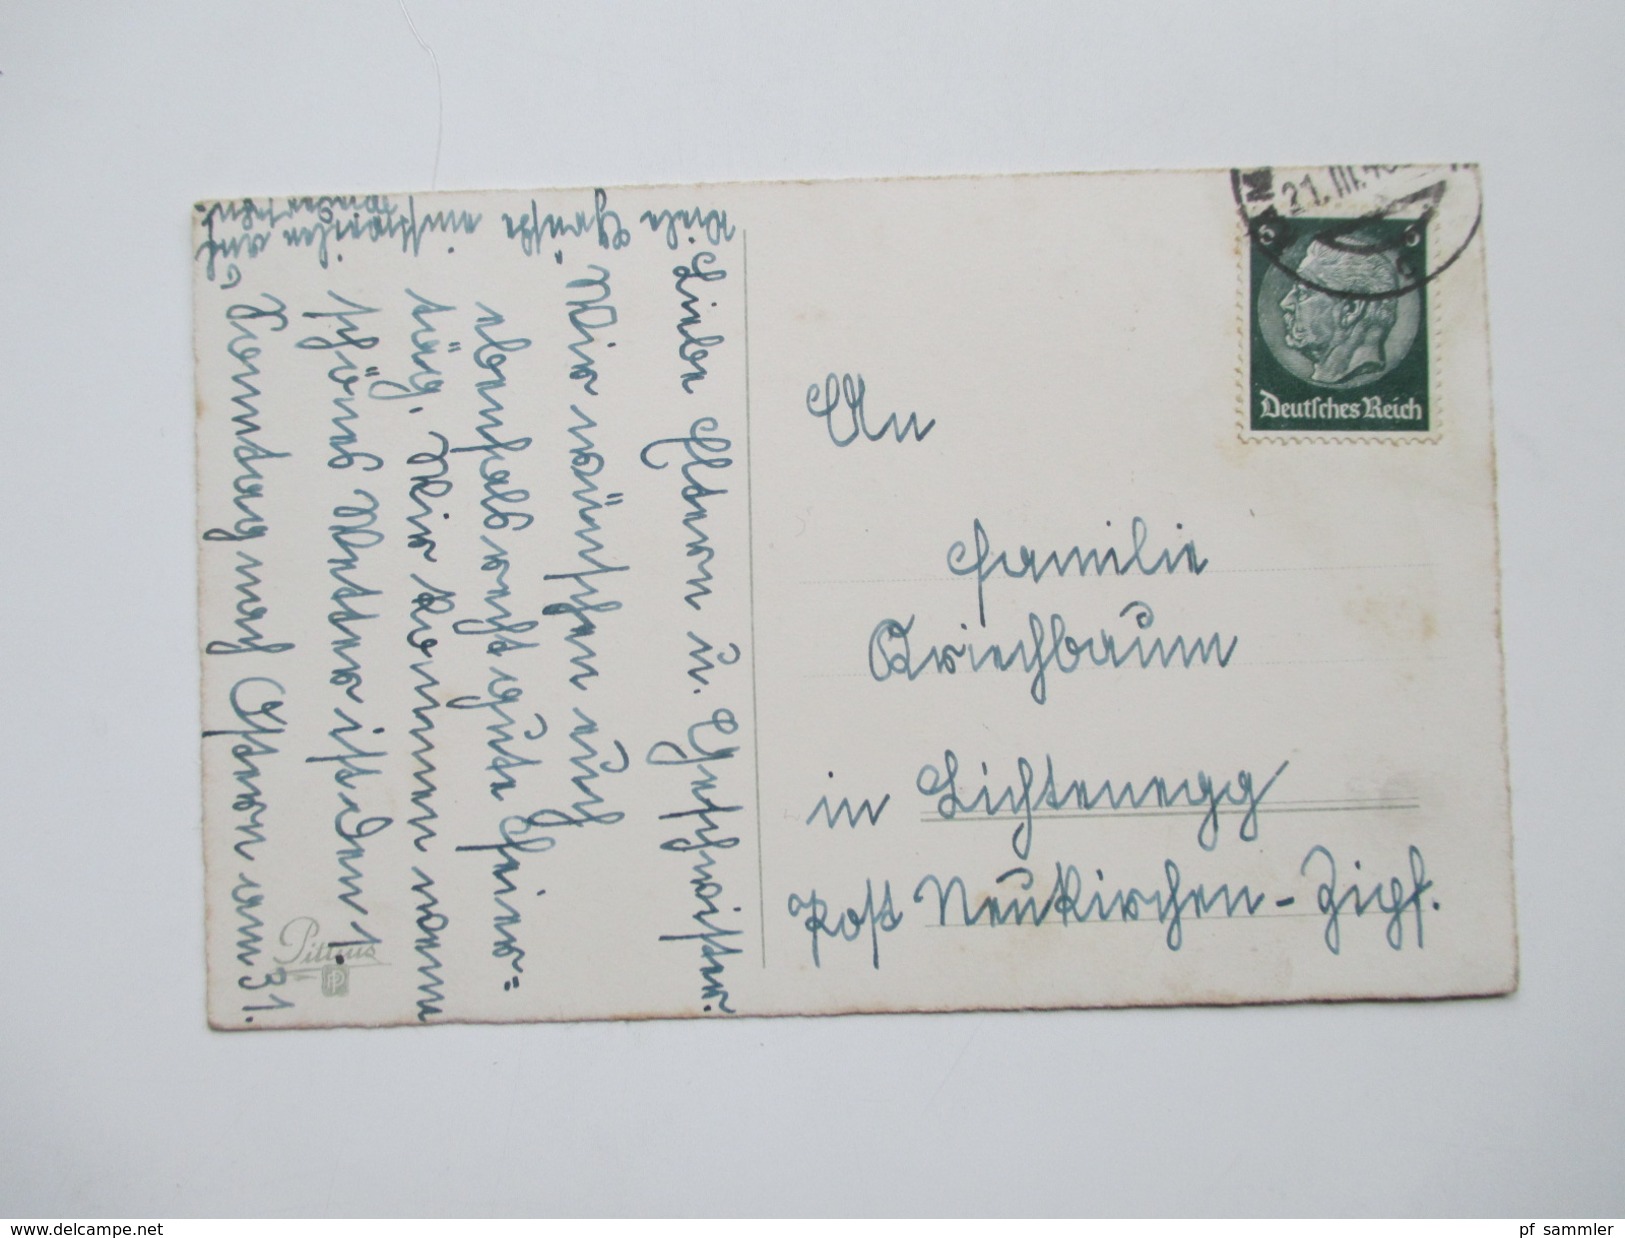 Liebe Eltern u. Geschwister.
Wir wünschen euch
ebenfals recht gute Feier=
täg, Wir kommen wenn
schönes Wetter ist den 1.
Sonntag nach Ostern am 31.
Viele Grüße einstweilen auf
Wiedersehn.
Pittius
PP
21. III. 40
6 6
Deutsches Reich
An
Familie
Kriechbaum
in Lichtenegg
Post Neukirchen-Zipf.
www.delcampe.net
pf_sammler